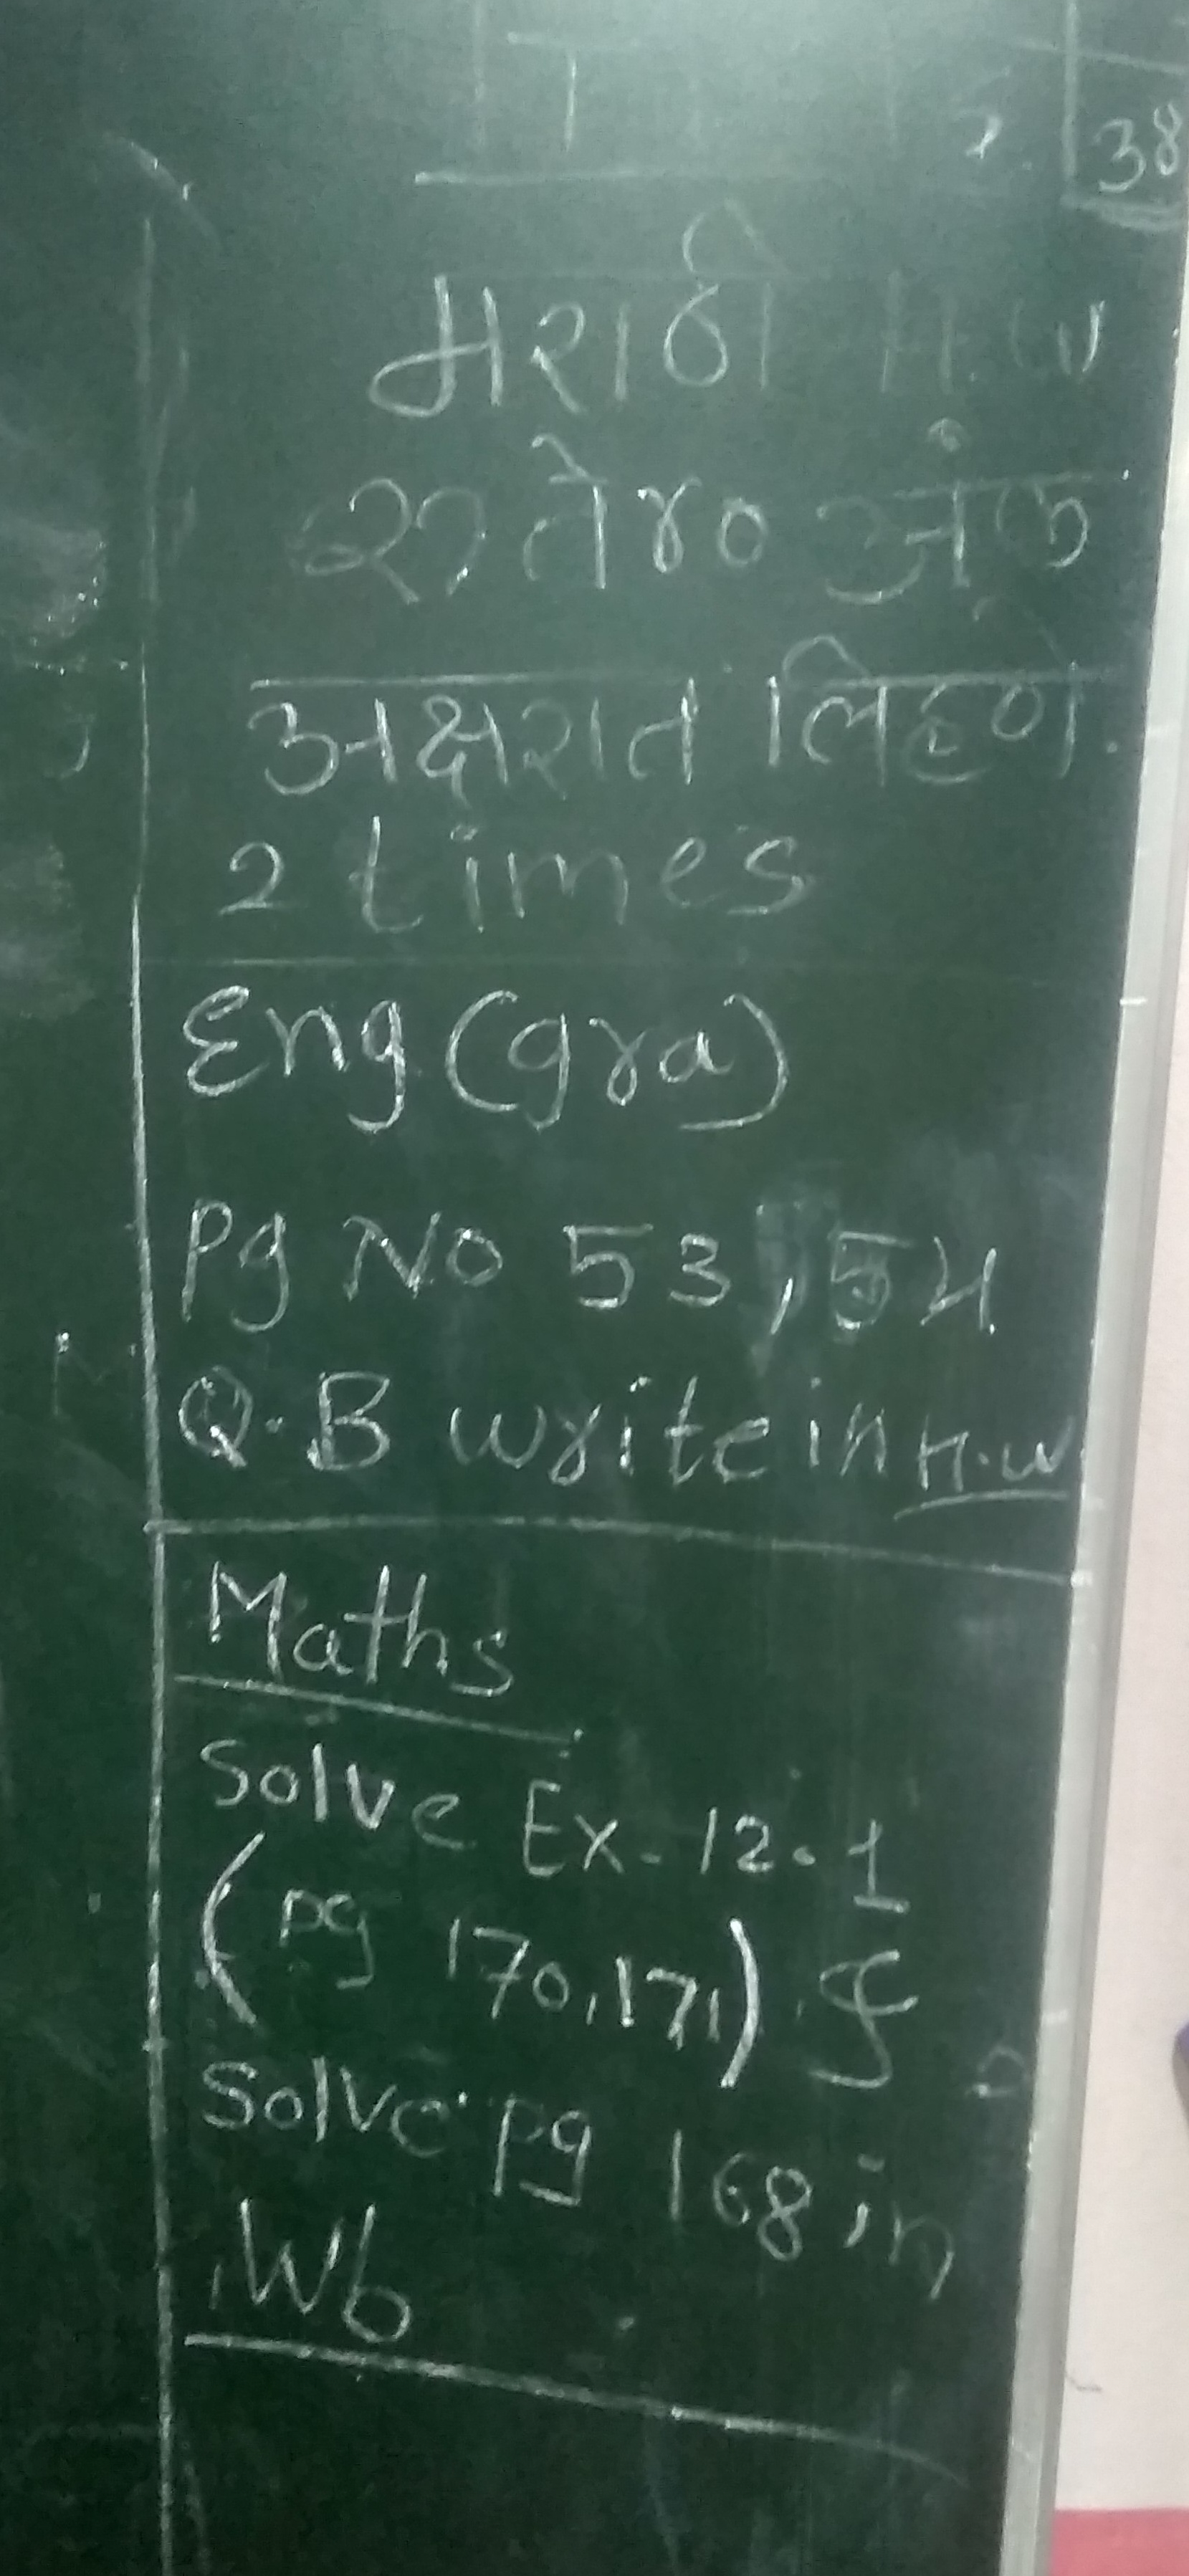 38
मराठी H.W
२१ ते ४० अंक
अक्षरात लिहणे.
2 times
Eng (gra)
Pg No 53, 54
Q.B write in H.W
Maths
Solve Ex. 12.1
(pg 170, 171) &
Solve pg 168 in
Wb